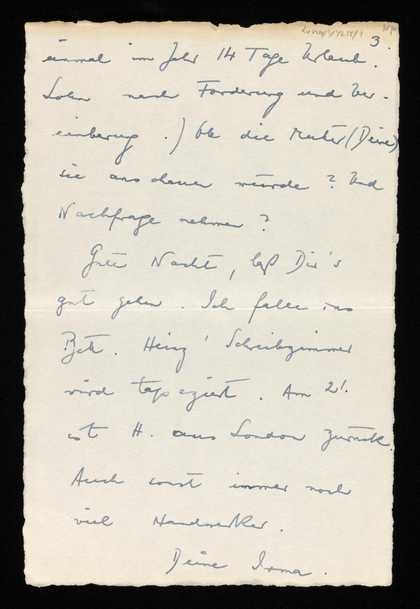 3.
einmal im Jahr 14 Tage Urlaub.
Lohn nach Forderung und Ver-
einbarung.) Ob die Mutter (Deine)
sie anschauen würde? Und
Nachfrage nehmen?
Gute Nacht, laß Dir's
gut gehen. Ich falle ins
Bett. Heinz' Schreibzimmer
wird tapeziert. Am 21.
ist H. aus London zurück.
Auch sonst immer noch
viel Handwerker.
Deine Irma.